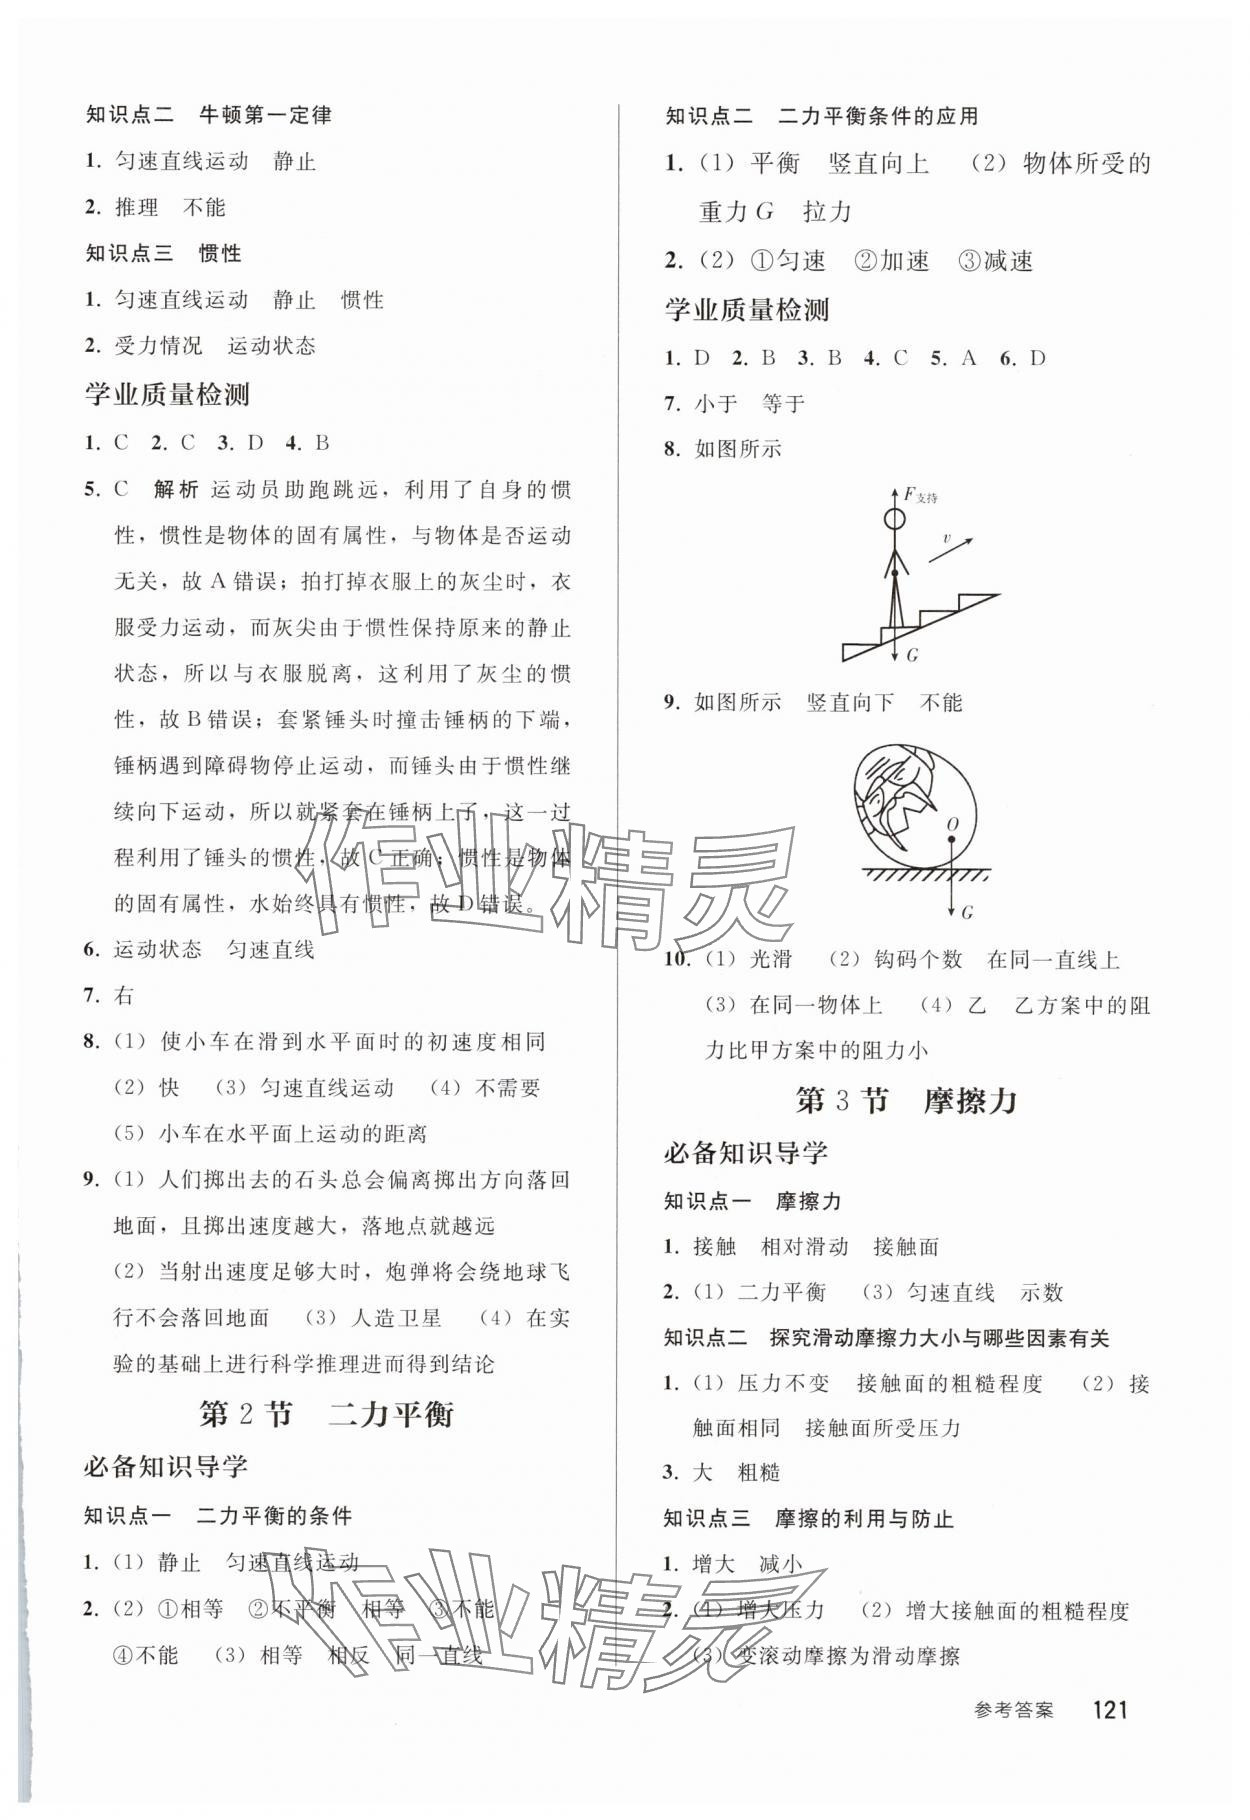 知识点二 牛顿第一定律
1. 匀速直线运动 静止
2. 推理 不能
知识点三 惯性
1. 匀速直线运动 静止 惯性
2. 受力情况 运动状态
学业质量检测
1. C 2. C 3. D 4. B
5. C 解析 运动员助跑跳远，利用了自身的惯
性，惯性是物体的固有属性，与物体是否运动
无关，故A错误；拍打掉衣服上的灰尘时，衣
服受力运动，而灰尖由于惯性保持原来的静止
状态，所以与衣服脱离，这利用了灰尘的惯
性，故B错误；套紧锤头时撞击锤柄的下端，
锤柄遇到障碍物停止运动，而锤头由于惯性继
续向下运动，所以就紧套在锤柄上了，这一过
程利用了锤头的惯性，故C正确；惯性是物体
的固有属性，水始终具有惯性，故D错误。
6. 运动状态 匀速直线
7. 右
8. （1）使小车在滑到水平面时的初速度相同
（2）快 （3）匀速直线运动 （4）不需要
（5）小车在水平面上运动的距离
9. （1）人们掷出去的石头总会偏离掷出方向落回
地面，且掷出速度越大，落地点就越远
（2）当射出速度足够大时，炮弹将会绕地球飞
行不会落回地面 （3）人造卫星 （4）在实
验的基础上进行科学推理进而得到结论
第2节 二力平衡
必备知识导学
知识点一 二力平衡的条件
1. （1）静止 匀速直线运动
2. （2）①相等 ②不平衡 相等 ③不能
④不能 （3）相等 相反 同一直线
知识点二 二力平衡条件的应用
1. （1）平衡 竖直向上 （2）物体所受的
重力G 拉力
2. （2）①匀速 ②加速 ③减速
学业质量检测
1. D 2. B 3. B 4. C 5. A 6. D
7. 小于 等于
8. 如图所示
F支持
v
G
9. 如图所示 竖直向下 不能
O
G
10. （1）光滑 （2）钩码个数 在同一直线上
（3）在同一物体上 （4）乙 乙方案中的阻
力比甲方案中的阻力小
第3节 摩擦力
必备知识导学
知识点一 摩擦力
1. 接触 相对滑动 接触面
2. （1）二力平衡 （3）匀速直线 示数
知识点二 探究滑动摩擦力大小与哪些因素有关
1. （1）压力不变 接触面的粗糙程度 （2）接
触面相同 接触面所受压力
3. 大 粗糙
知识点三 摩擦的利用与防止
1. 增大 减小
2. （1）增大压力 （2）增大接触面的粗糙程度
（3）变滚动摩擦为滑动摩擦
参考答案 121
作业精灵
作业精灵